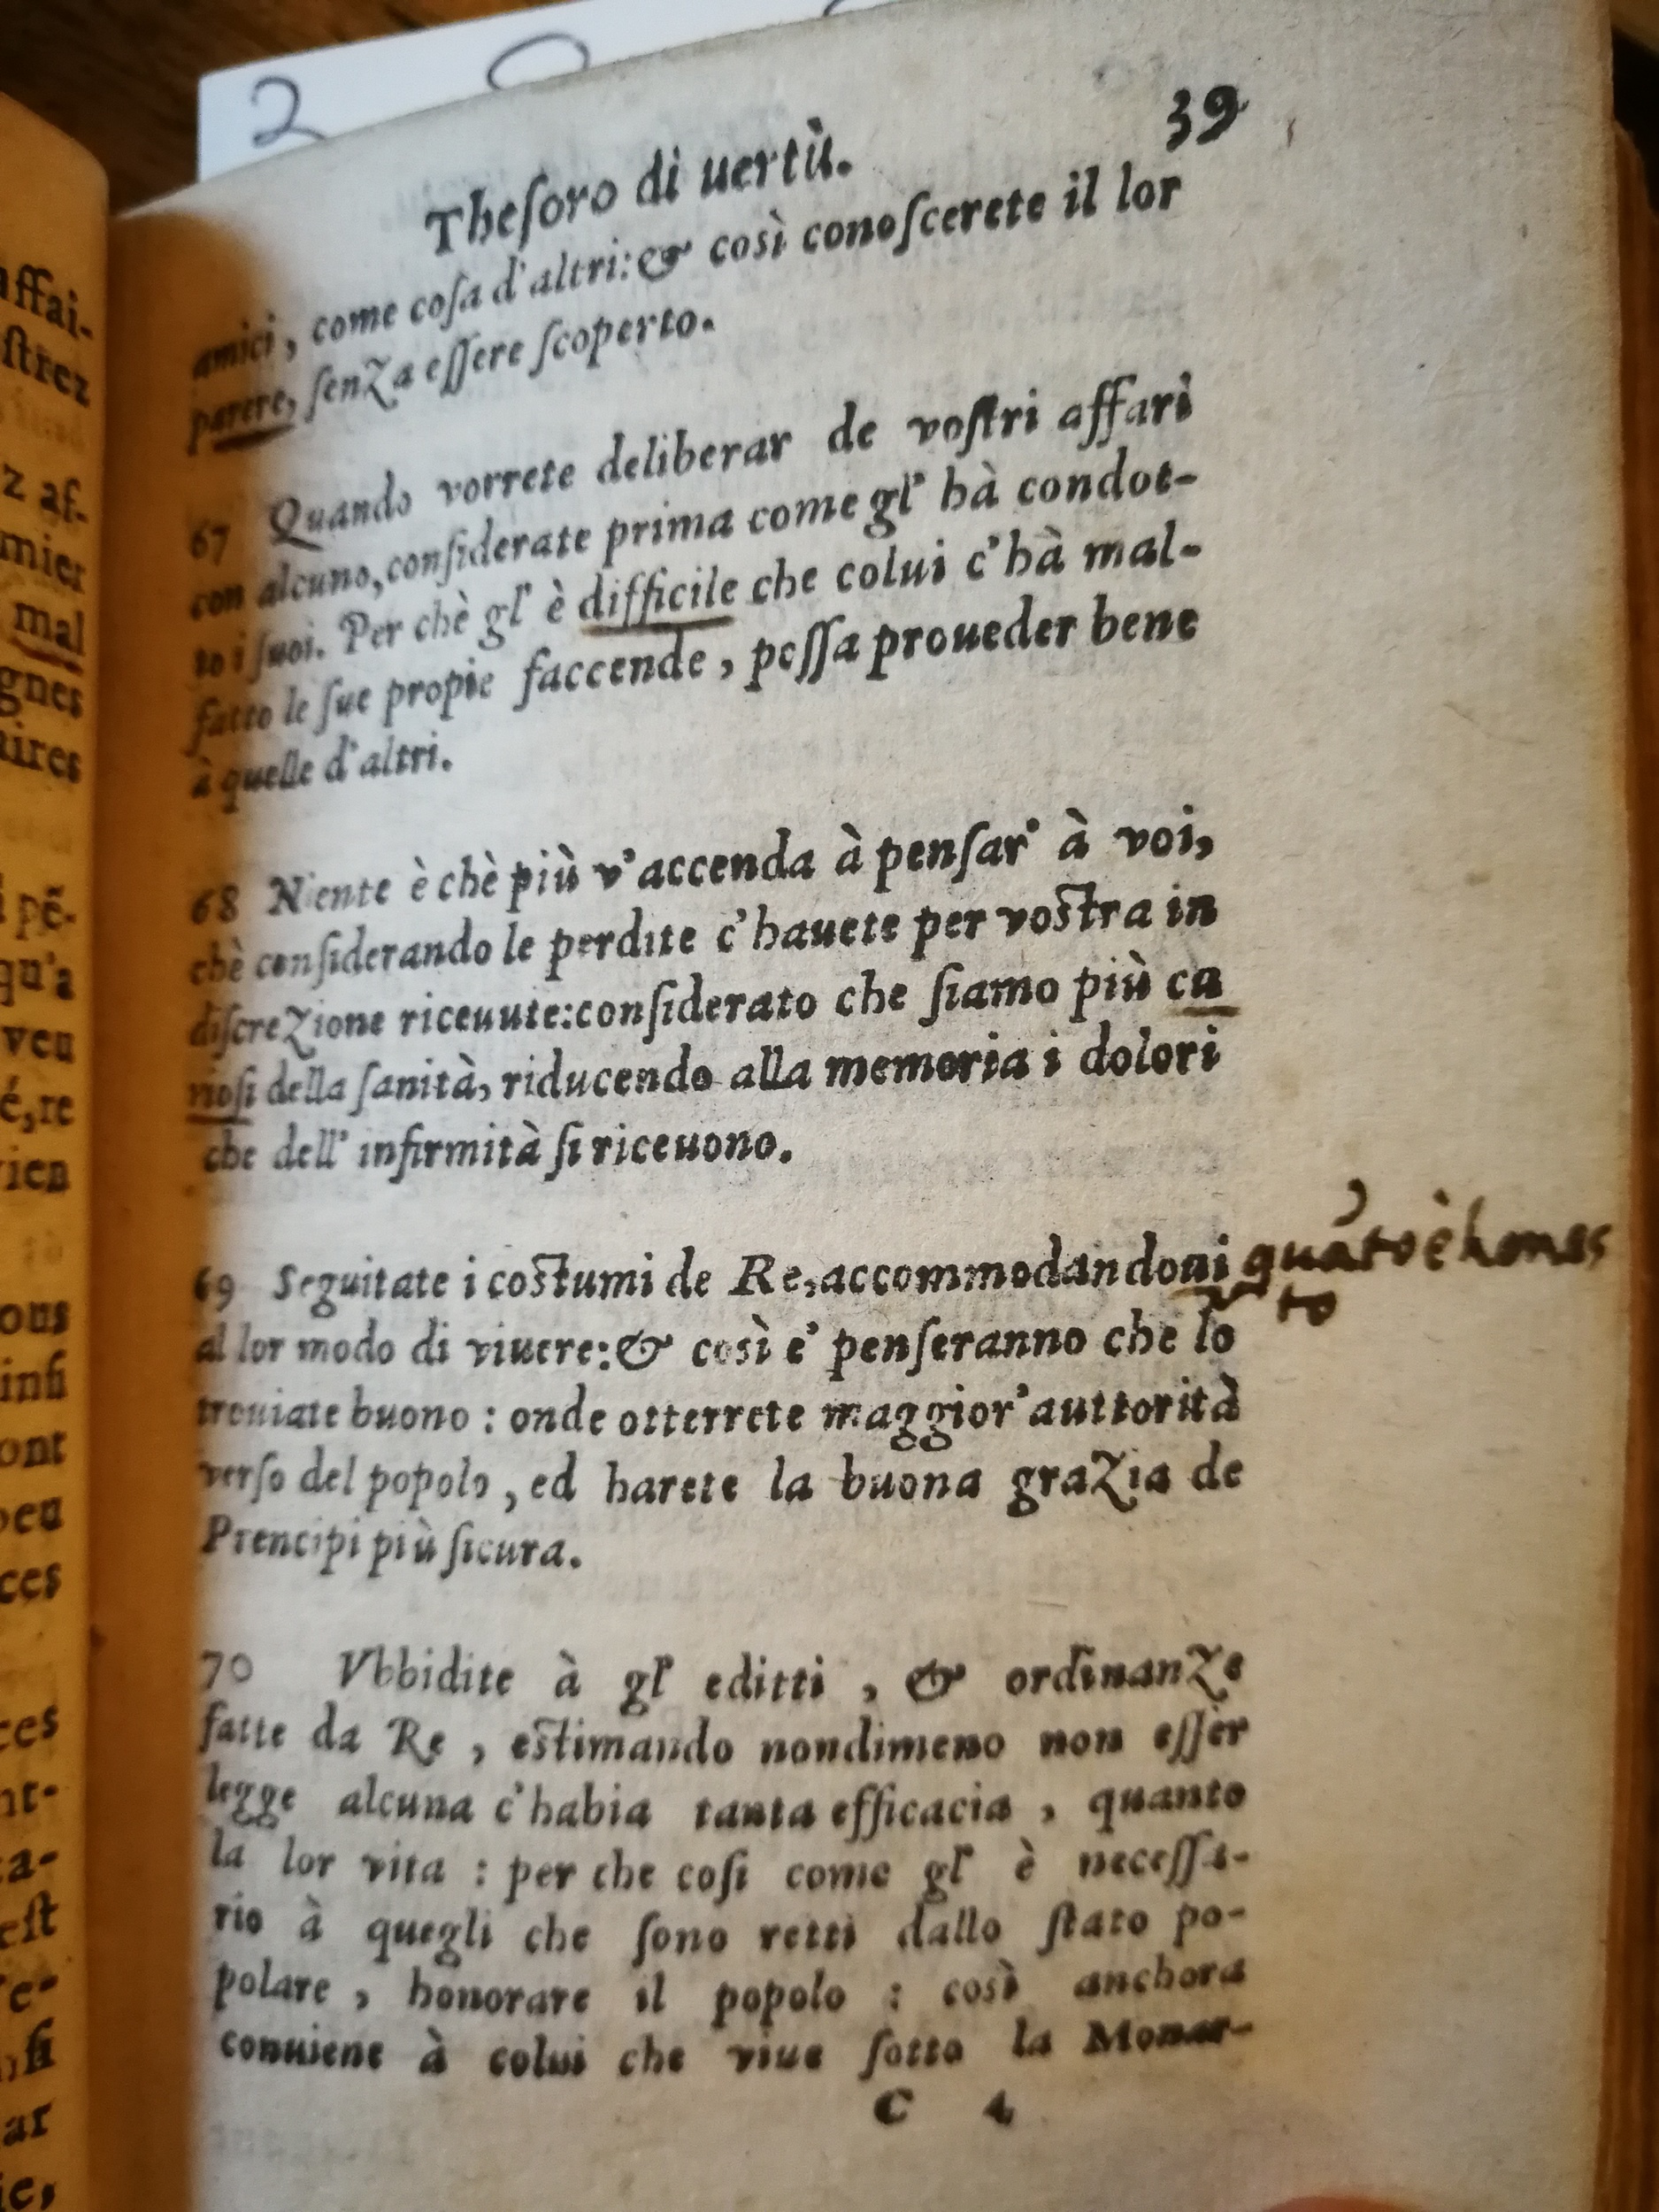 2
39
Theſoro di uertù.
amici, come coſa d'altri: & così conoſcerete il lor
parere, ſenza eſſere ſcoperto.
67 Quando vorrete deliberar de voſtri affari
con alcuno, conſiderate prima come gl' hà condot-
to i ſuoi. Per chè gl' è difficile che colui c'hà mal-
fatto le ſue propie faccende, poſſa proueder bene
à quelle d'altri.
68 Niente è chè più v'accenda à penſar' à voi,
chè conſiderando le perdite c'hauete per voſtra in
diſcrezione riceuute: conſiderato che ſiamo più cu
rioſi della ſanità, riducendo alla memoria i dolori
che dell' infirmità ſi riceuono.
69 Seguitate i coſtumi de Re, accommodandoui quãto è hones
to
al lor modo di viuere: & così e' penſeranno che lo
trouiate buono: onde otterrete maggior' auttorità
verſo del popolo, ed harete la buona grazia de
Prencipi più ſicura.
70 Vbbidite à gl' editti, & ordinanze
fatte da Re, eſtimando nondimeno non eſſer
legge alcuna c'habia tanta efficacia, quanto
la lor vita: per che coſi come gl' è neceſſa-
rio à quegli che ſono retti dallo ſtato po-
polare, honorare il popolo: così anchora
conuiene à colui che viue ſotto la Monar-
C 4
affai-
ſtrez
z af-
mier
mal
gnes
aires
pẽ-
qu'a
veu
é, re
rien
ous
infi
ont
peu
ces
ces
nt-
ca-
eſt
re-
ar
ie,